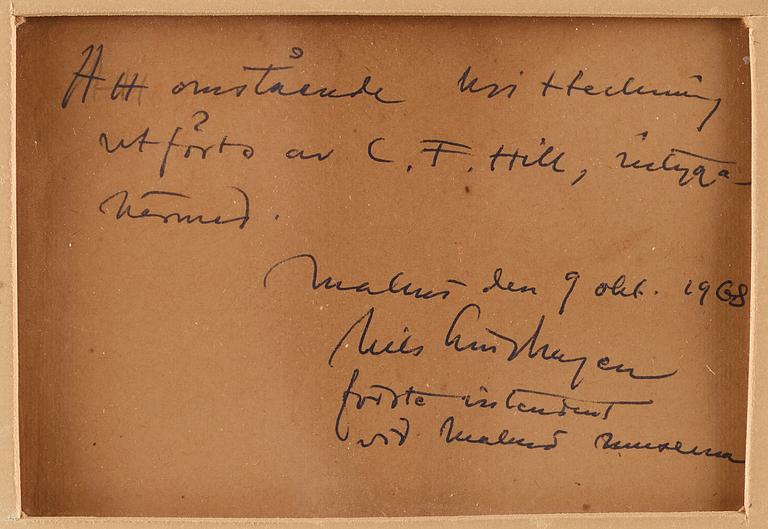 Att omstående kritteckning
utförts av C. F. Hill, intygas
härmed.
Malmö den 9 okt. 1968
Nils Lindhagen
förste intendent
vid Malmö museum